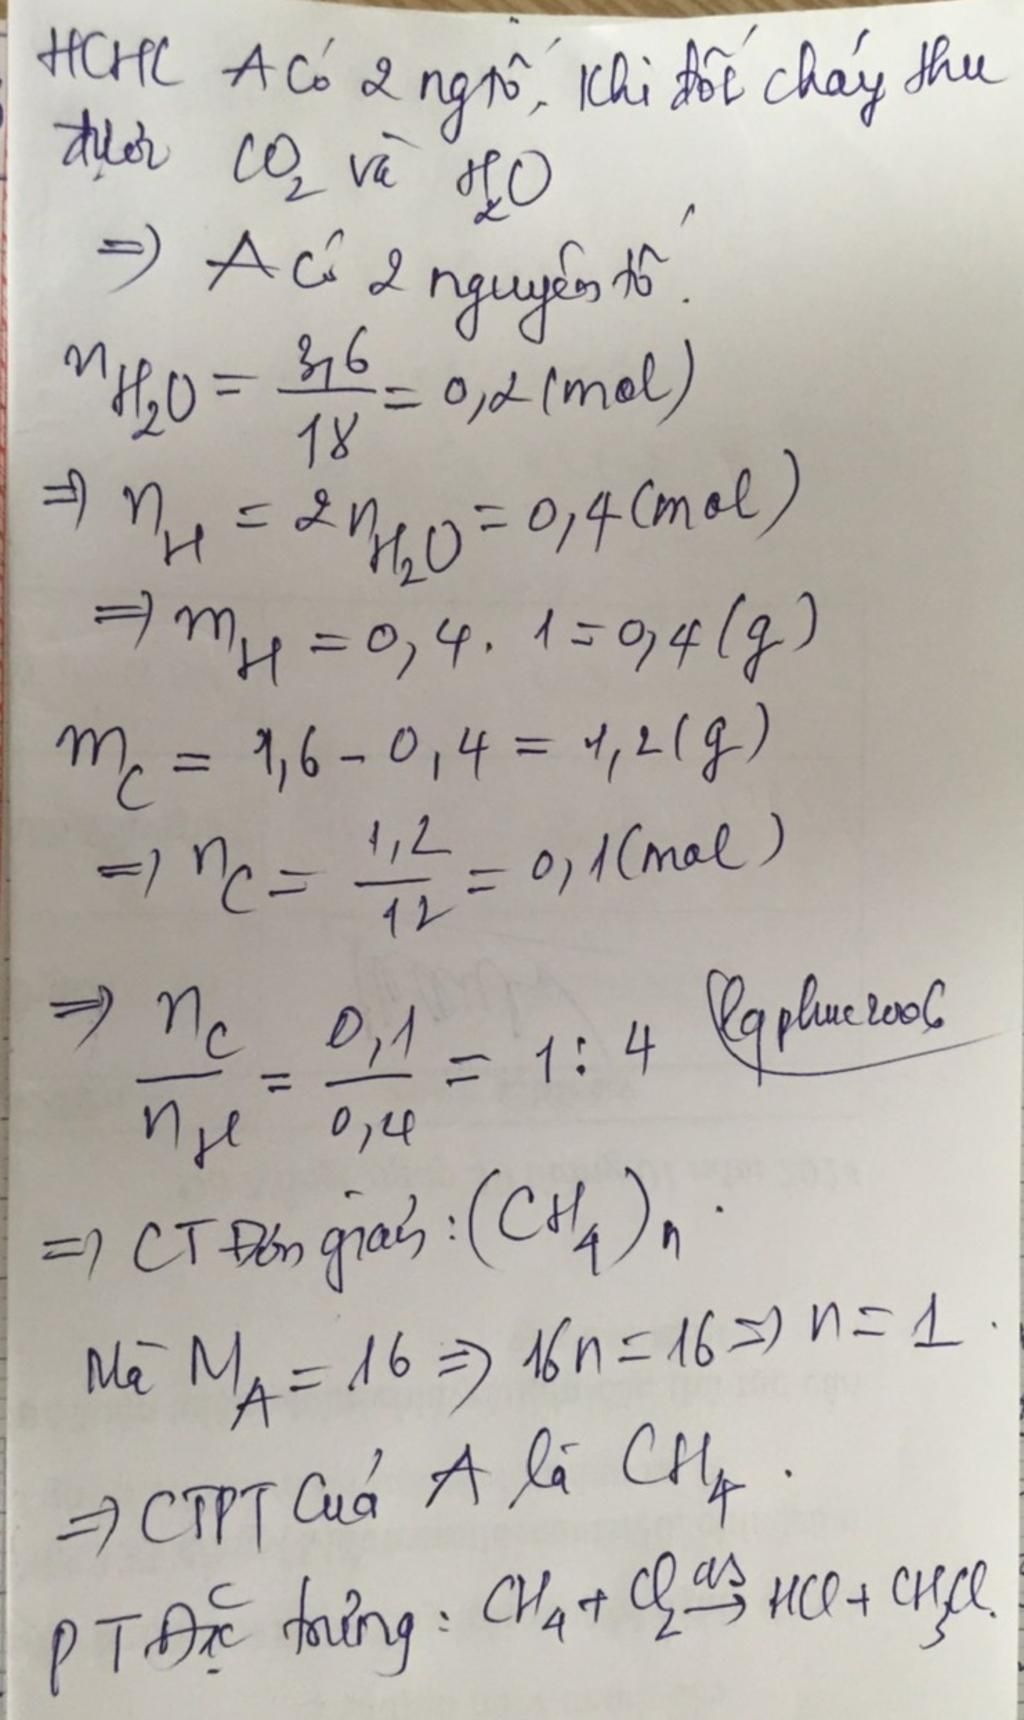 HCHC A Có 2 ng tố, Khi đốt cháy thu
được CO₂ và H₂O
=> A Có 2 nguyên tố.
n_H₂O = 3,6/18 = 0,2 (mol)
=> n_H = 2n_H₂O = 0,4 (mol)
=> m_H = 0,4 . 1 = 0,4 (g)
m_C = 1,6 - 0,4 = 1,2 (g)
=> n_C = 1,2/12 = 0,1 (mol)
=> n_C/n_H = 0,1/0,4 = 1 : 4 lqphuc2006
=> CT Đơn giản : (CH₄)n .
Mà M_A = 16 => 16n = 16 => n = 1 .
=> CTPT Của A là CH₄ .
PT Đặc trưng : CH₄ + Cl₂ as→ HCl + CH₃Cl.